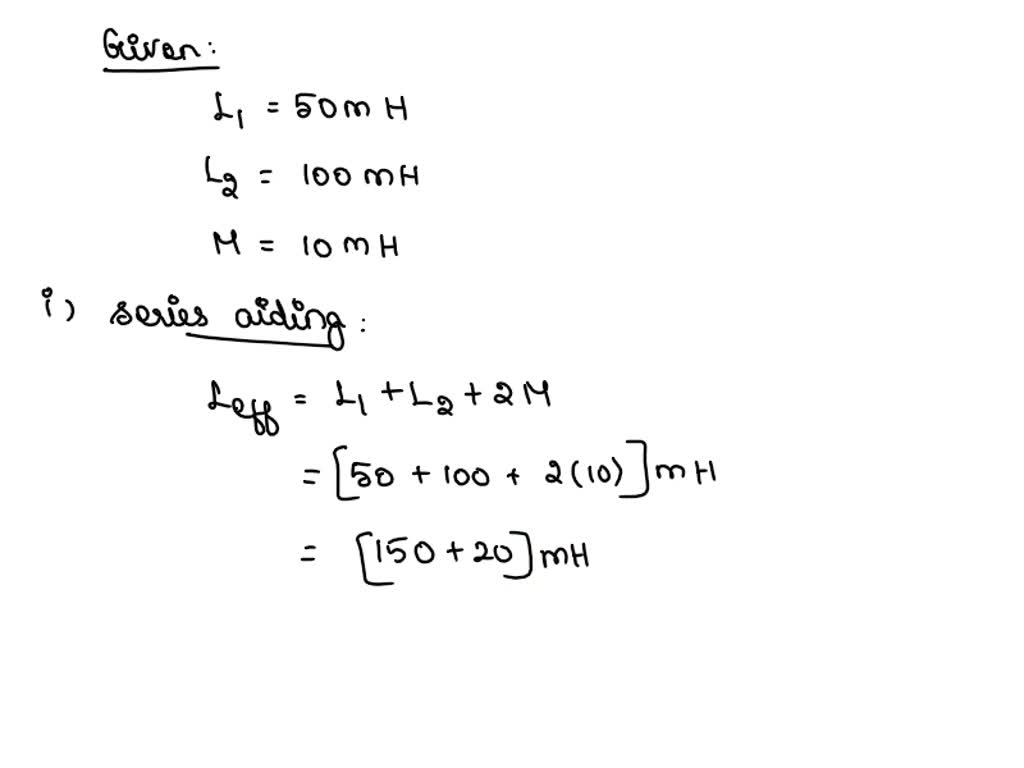 Given:
L1 = 50 mH
L2 = 100 mH
M = 10 mH
i) series aiding:
Leff = L1 + L2 + 2M
= [50 + 100 + 2(10)] mH
= [150 + 20] mH